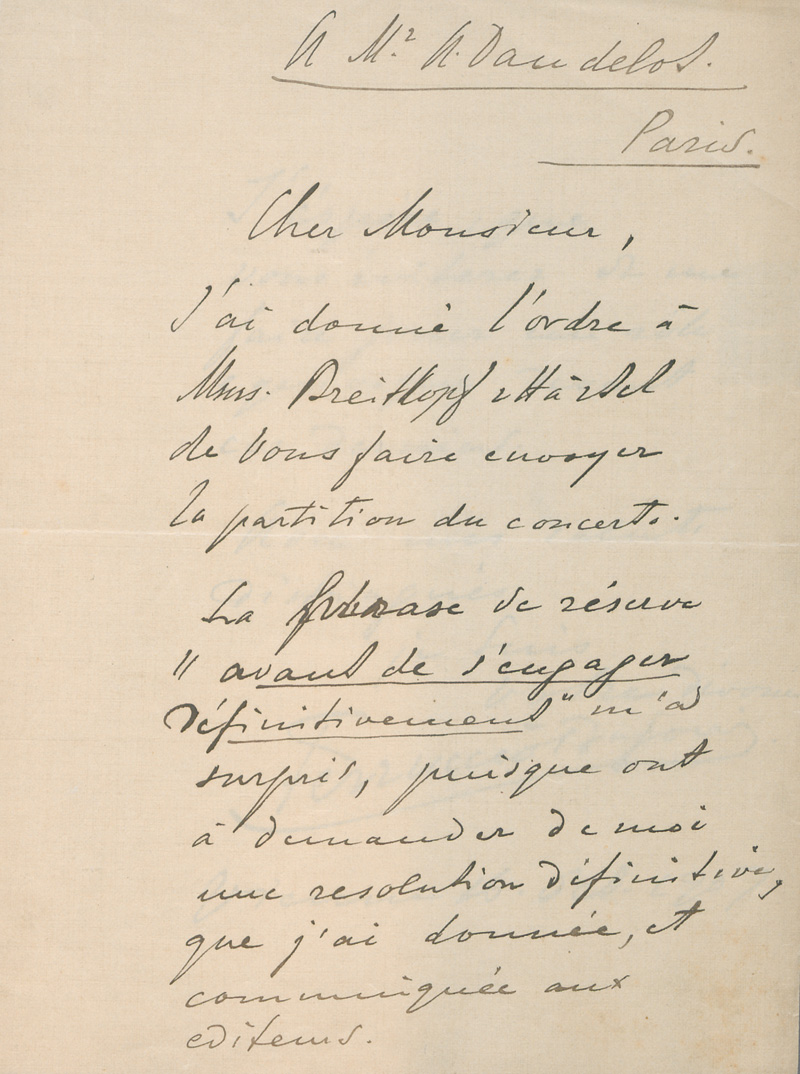 A Mr A. Dandelot.
Paris.
Cher Monsieur,
J'ai donné l'ordre à
Mrss. Breitkopf et Härtel
de Vous faire envoyer
la partition du concerto.
La phrase de réserve
"avant de s'engager
définitivement" m'a
surpris, puisque ont
à demander de moi
une resolution définitive,
que j'ai donnée, et
communiquée aux
editeurs.